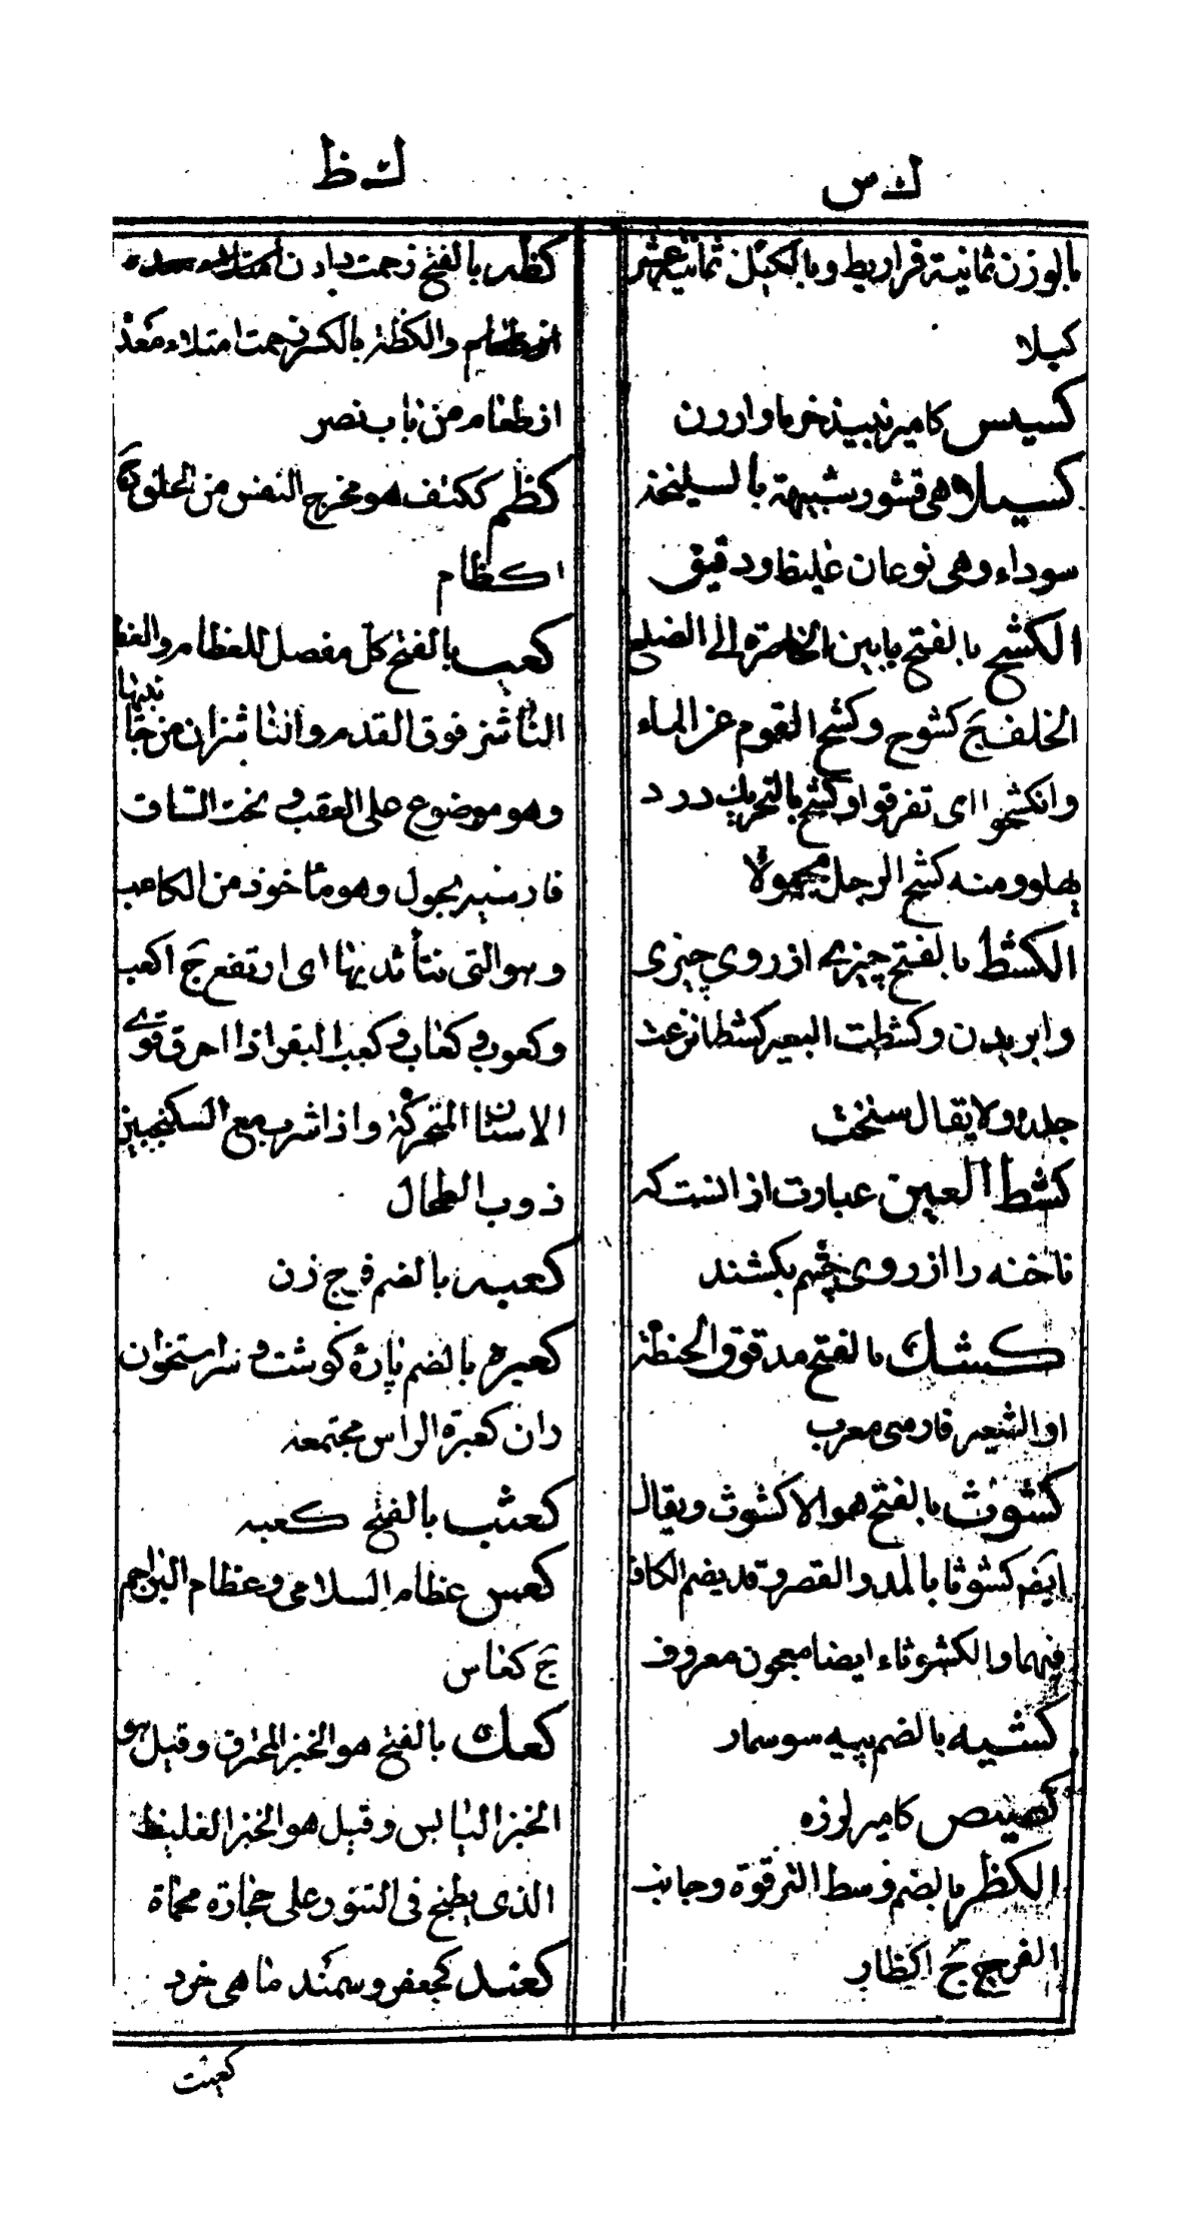 ك س
بالوزن ثمانية قراريط وبالكيل ثمانية عشر
كيلا
كسيس كامير نبيذ خرما وارزن
كسيلا هى قشور شبيهة بالسليخة
سوداء وهى نوعان غليظ ودقيق
الكشح بالفتح مابين الخاصرة الى الضلع
الخلف ج كشوح وكشح القوم عن الماء
وانكشحوا اى تفرقوا وكشح بالتحريك درد
پهلو ومنه كشح الرجل مجهولا
الكشط بالفتح چيزے از روى چيزى
وابريدن وكشطت البعير كشطا نزعت
جلده ولا يقال سلخت
كشط العين عبارت از انست كه
ناخنه را از روى چشم بكشند
كشك بالفتح مدقوق الحنطة
او الشعير فارسى معرب
كشوث بالفتح هو الاكشوث ويقال
ايضم كشوثا بالمد والقصر وقد يضم الكاف
فيهما والكشوثاء ايضا معجون معروف
كشيه بالضم پيه سوسمار
كصيص كامير لرزه
الكظر بالضم وسط الترقوة وجانب
الفرج ج اكظار
ك ظ
كظه بالفتح زحمت دادن
والكظة بالكسر زحمت امتلاء معده
از طعام من باب نصر
كظم ككتف هو مخرج النفس من الحلق ج
اكظام
كعب بالفتح كل مفصل للعظام والعظم
الناشز فوق القدم والناشزان من جانبيها
وهو موضوع على العقب وتحت الساق
فارسيه بجول وهو مأخوذ من الكاعب
وهو التى نتأ ثديها اى ارتفع ج اكعب
وكعوب وكعاب وكعب البقر اذا احرق قوے
الاسنان المتحركة واذا شرب مع السكنجبين
ذوب الطحال
كعبه بالضم فرج زن
كعبره بالضم پارهٔ كوشت و سر استخوان
ران كعبرة الراس مجتمعه
كعثب بالفتح كعبه
كعس عظام السلامى وعظام البراجم
ج كعاس
كعك بالفتح هو الخبز المحرق وقيل هو
الخبز اليابس وقيل هو الخبز الغليظ
الذى يطبخ فى التنور على حجارة محماة
كعند كجعفر وسمند ماهى خرد
كعيت